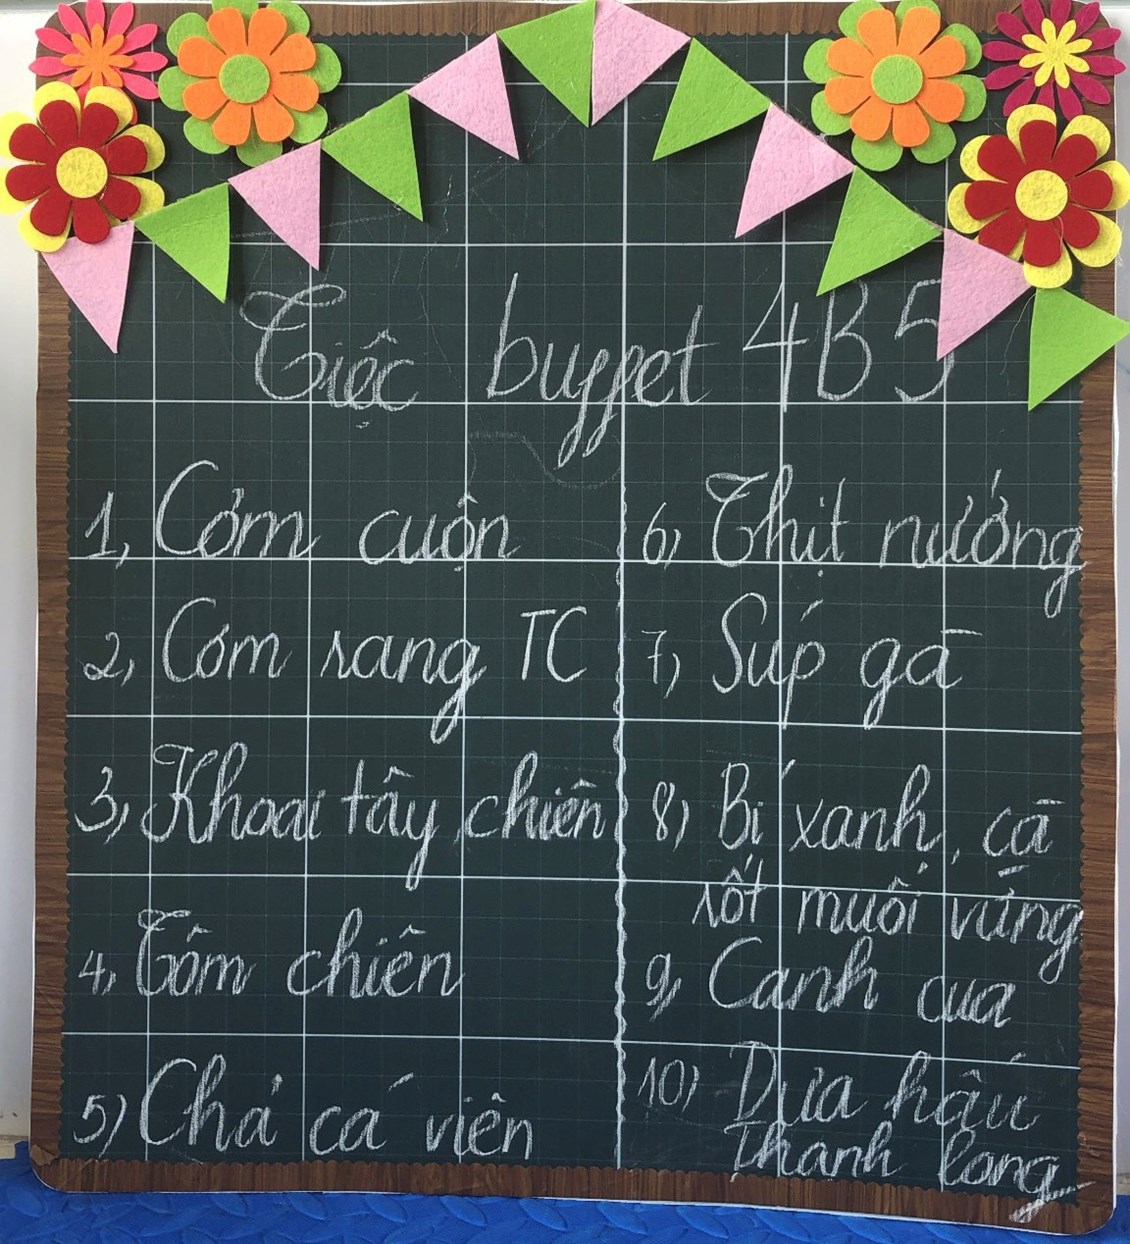 Tiệc buffet 4B5
1, Cơm cuộn
2, Cơm rang TC
3, Khoai tây chiên
4, Tôm chiên
5) Chả cá viên
6) Thịt nướng
7) Súp gà
8) Bí xanh, cà
rốt muối vừng
9, Canh cua
10) Dưa hấu
Thanh long